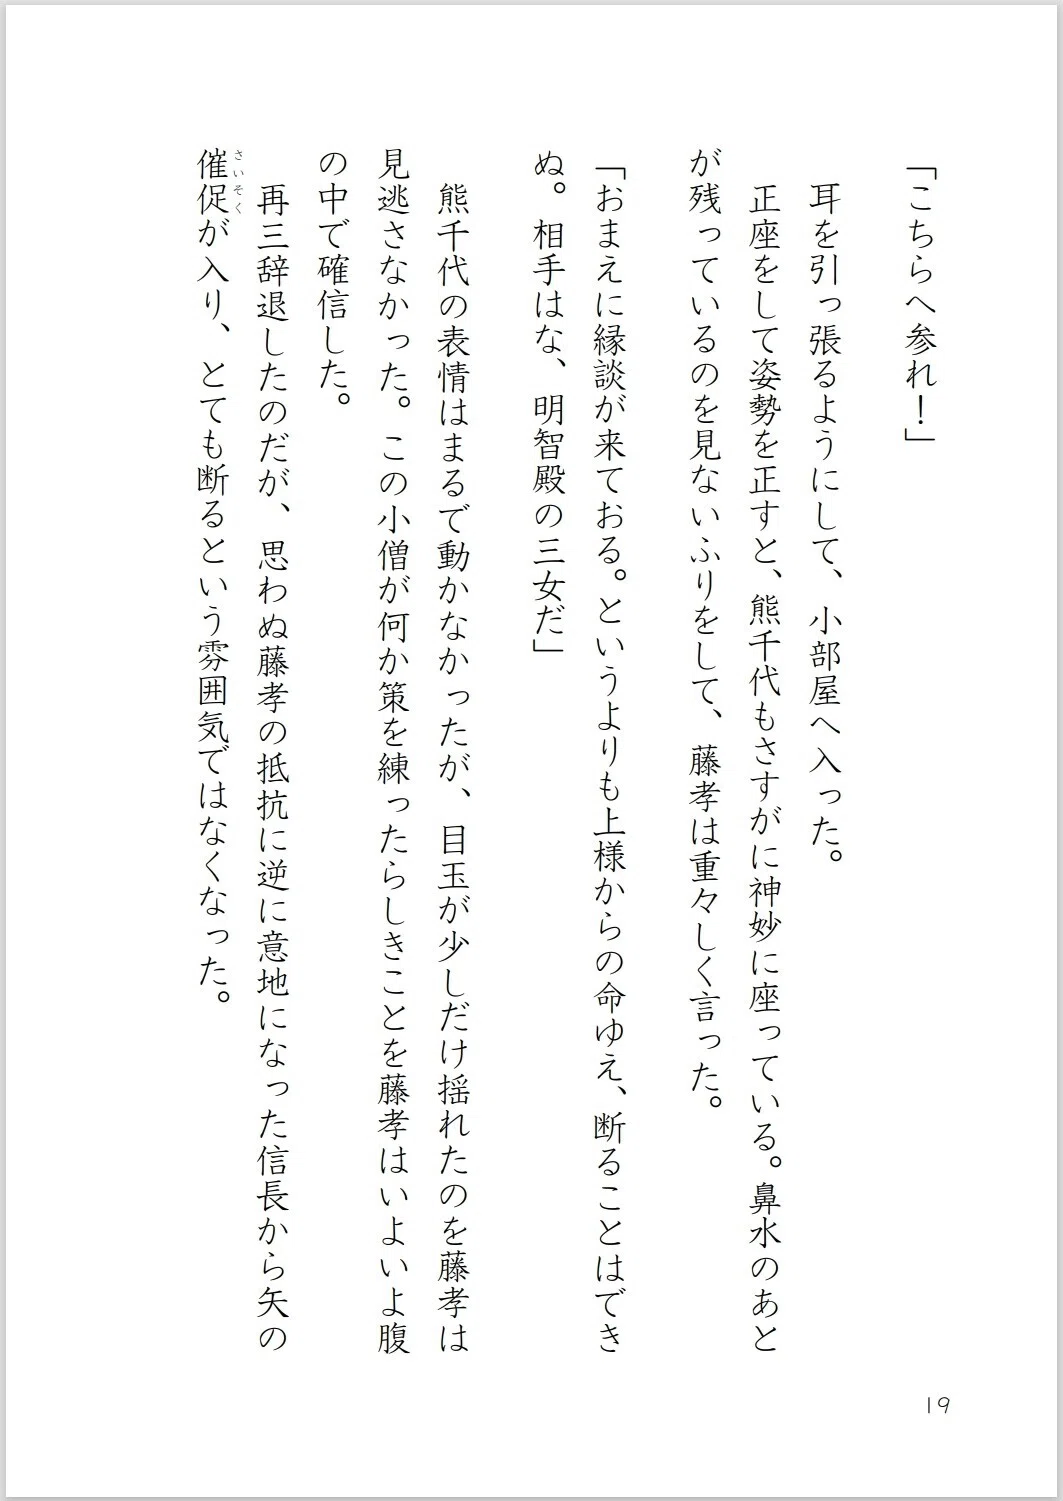 「こちらへ参れ！」
耳を引っ張るようにして、小部屋へ入った。
正座をして姿勢を正すと、熊千代もさすがに神妙に座っている。鼻水のあと
が残っているのを見ないふりをして、藤孝は重々しく言った。
「おまえに縁談が来ておる。というよりも上様からの命ゆえ、断ることはでき
ぬ。相手はな、明智殿の三女だ」
熊千代の表情はまるで動かなかったが、目玉が少しだけ揺れたのを藤孝は
見逃さなかった。この小僧が何か策を練ったらしきことを藤孝はいよいよ腹
の中で確信した。
再三辞退したのだが、思わぬ藤孝の抵抗に逆に意地になった信長から矢の
催促が入り、とても断るという雰囲気ではなくなった。
さいそく
19